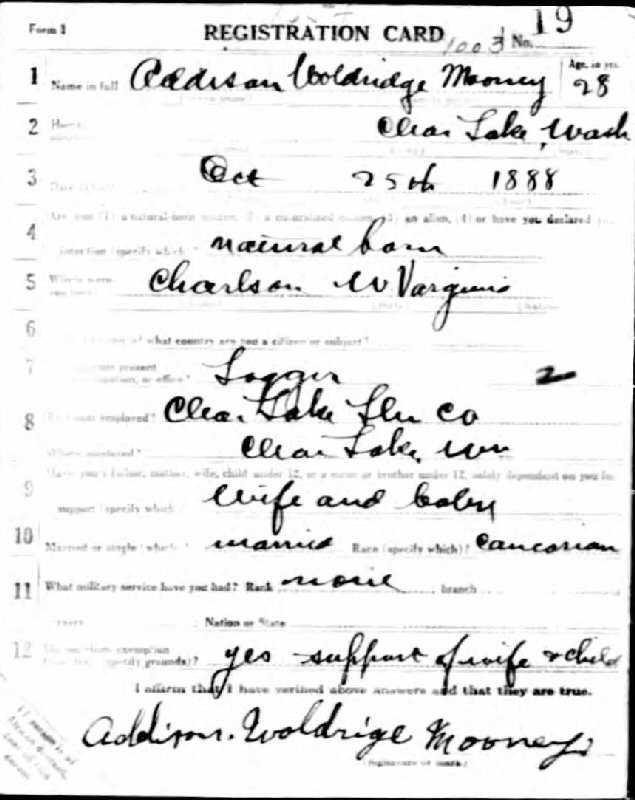 Form 1 REGISTRATION CARD 1003 No. 19
1 Name in full Addison Woldridge Mooney Age, in yrs. 28
2 Clear Lake, Wash
3 Oct 25th 1888
4 Are you (1) a natural-born citizen, (2) a naturalized citizen, (3) an alien, (4) or have you declared
intention (specify which)? natural born
5 Where were Charlson W Varginia
6 of what country are you a citizen or subject?
7 present occupation, or office? Logger 2
8 employed? Clear Lake Co
Where employed? Clear Lake, Wn
9 Have you a father, mother, wife, child under 12, or a sister or brother under 12, solely dependent on you for
support (specify which)? Wife and baby
10 Married or single (which)? married Race (specify which)? Caucasian
11 What military service have you had? Rank none branch
years Nation or State
12 Do you claim exemption (specify grounds)? yes support of wife & child
I affirm that I have verified above answers and that they are true.
Addison. Woldrige Mooney
(Signature or mark)